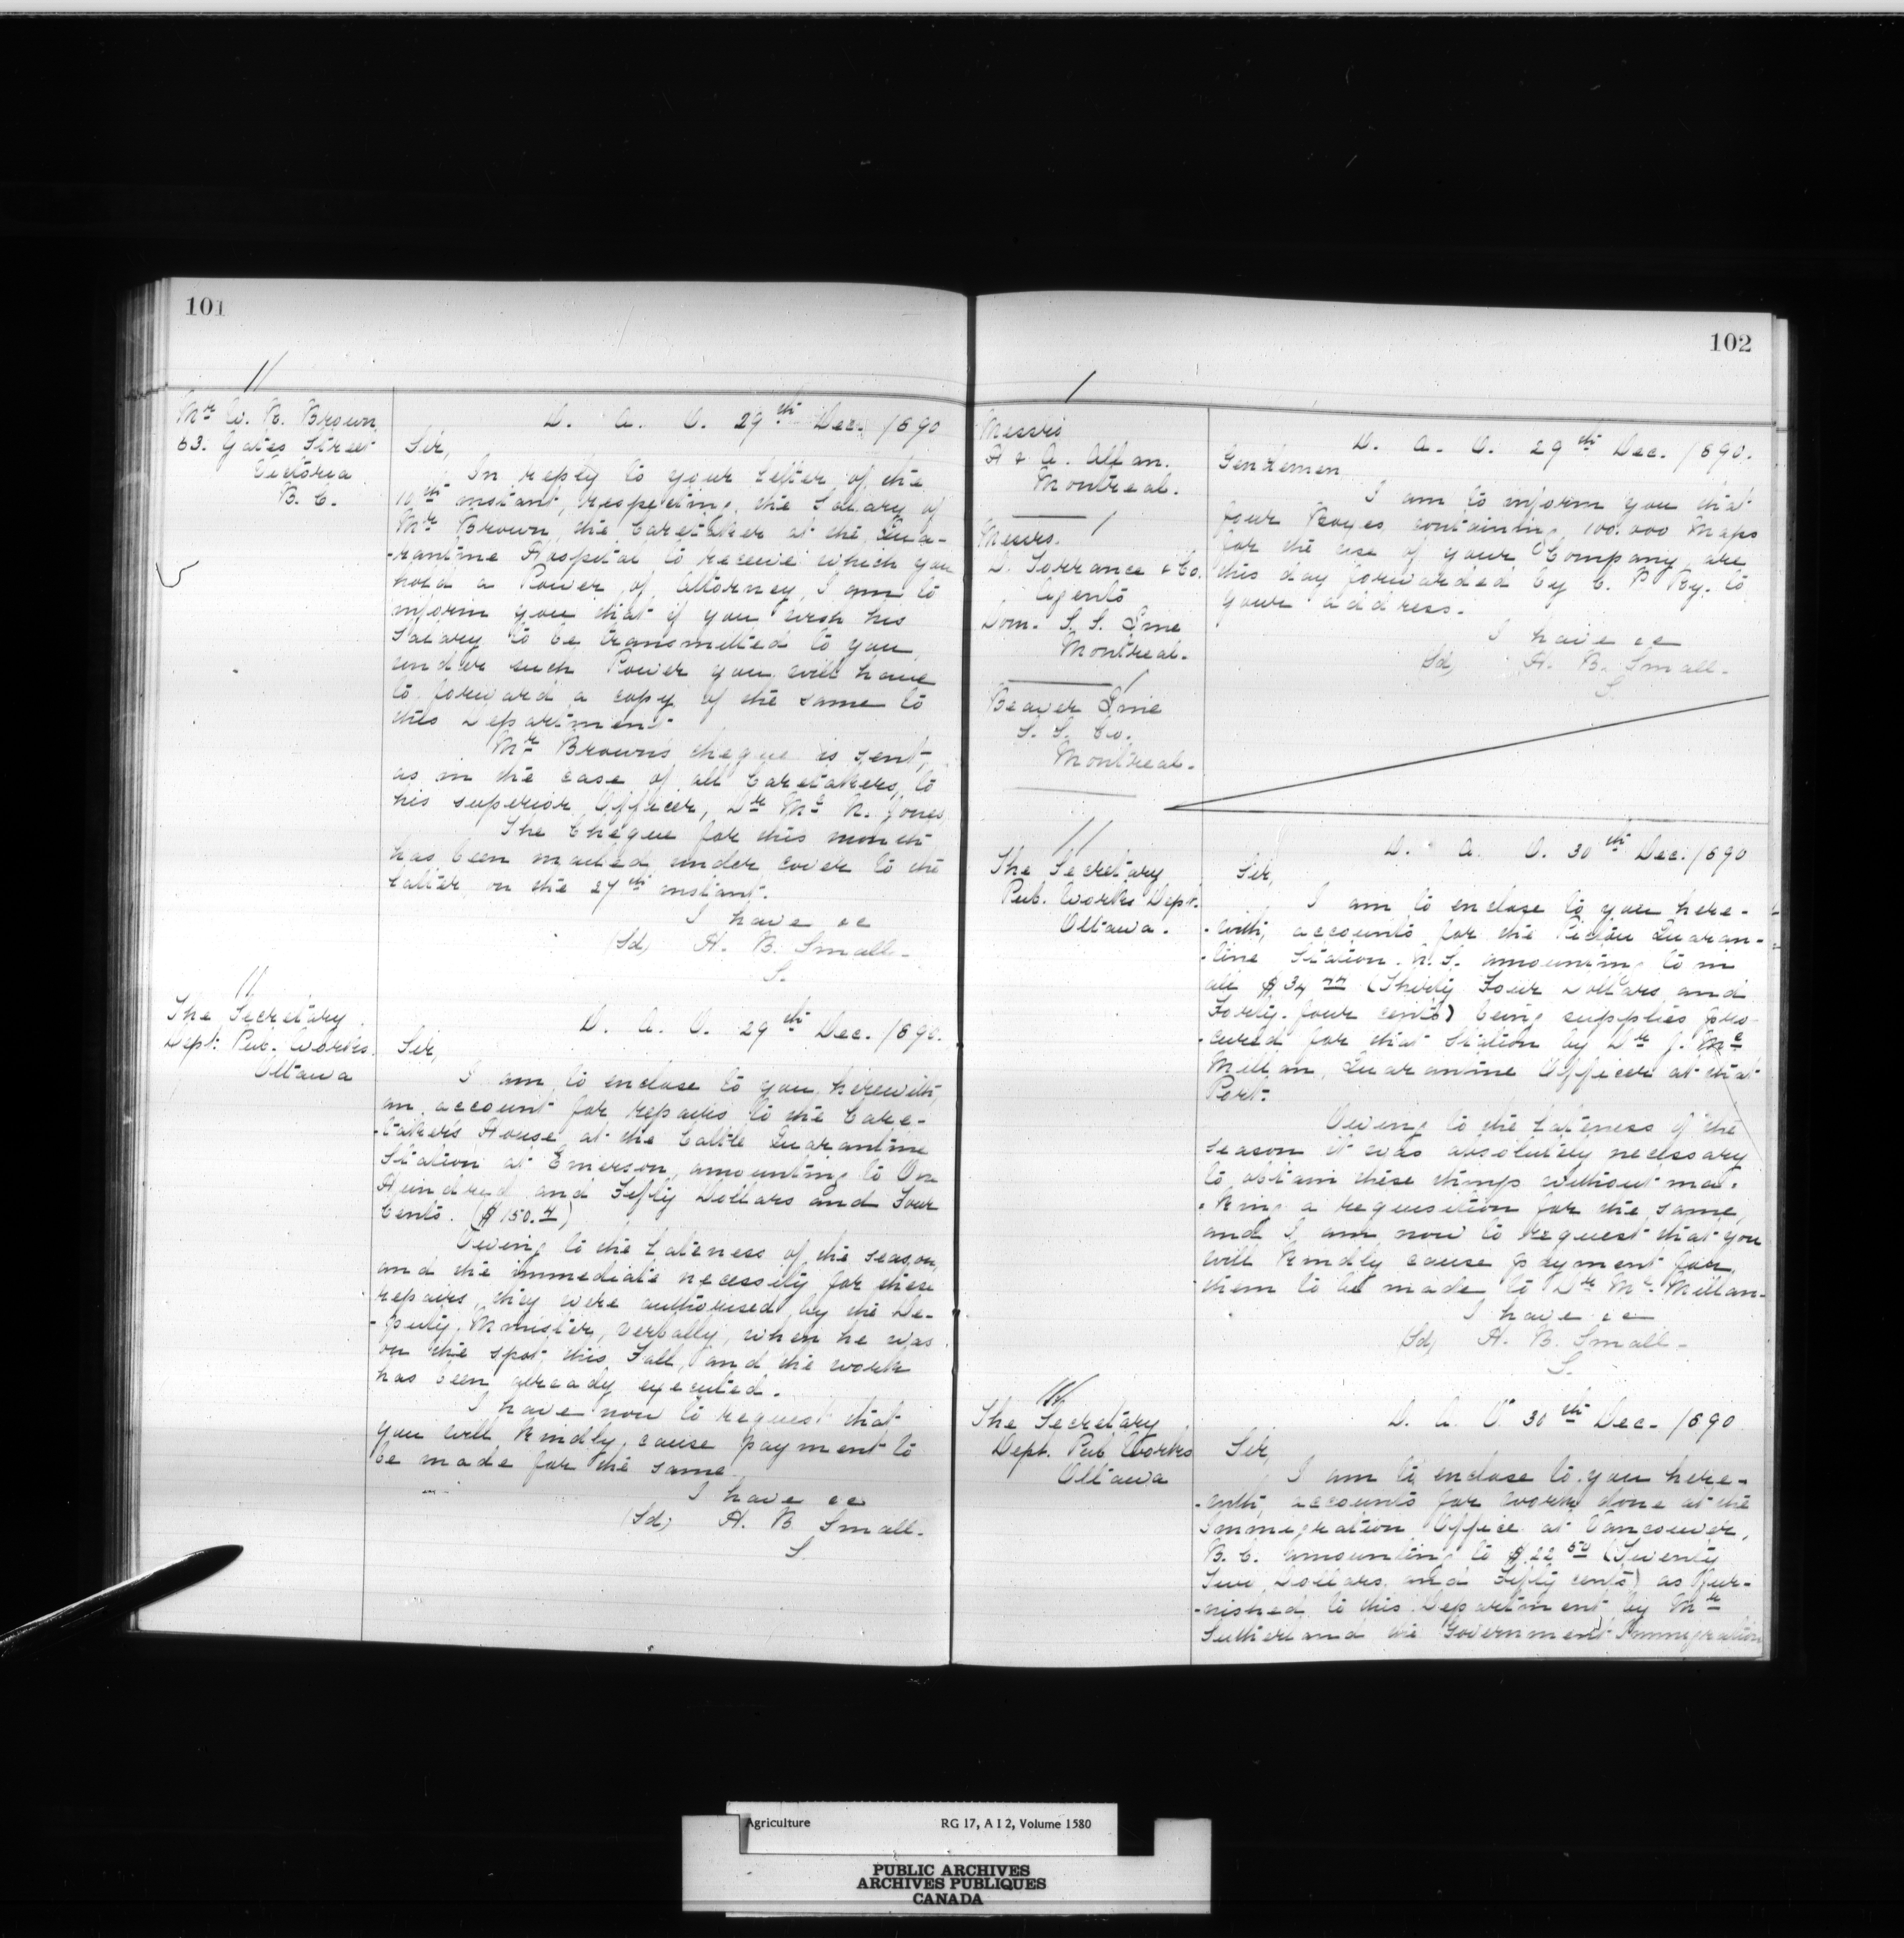 101
Mr W. R. Brown
63. Yates Street
Victoria
B. C.
D. A. O. 29th Dec. 1890
Sir,
In reply to your letter of the
10th instant, respecting the Salary of
Mr Brown, the Caretaker at the Qua-
-rantine Hospital to receive which you
hold a Power of Attorney, I am to
inform you that if you wish his
Salary to be transmitted to you,
under such Power you will have
to forward a copy of the same to
this Department.
Mr Brown's cheque is sent,
as in the case of all Caretakers, to
his superior Officer, Dr Mc N. Jones,
The Cheque for this month
has been mailed under cover to the
latter, on the 27th instant.
I have &c
(Sd) H. B. Small-
S.
The Secretary
Dept: Pub. Works.
Ottawa
D. A. O. 29th Dec. 1890.
Sir,
I am to enclose to you, herewith,
an account for repairs to the Care-
-taker's House at the Cattle Quarantine
Station at Emerson, amounting to One
Hundred and Fifty Dollars and Four
Cents. ($150.4)
Owing to the Lateness of the season,
and the immediate necessity for these
repairs, they were authorised by the De-
-puty Minister, verbally, when he was
on the spot this Fall, and the work
has been already executed.
I have now to request that
you will kindly cause payment to
be made for the same.
I have &c
(Sd) H. B Small-
S.
102
Messrs
H & A. Allan.
Montreal.
Messrs.
D. Torrance & Co.
Agents
Dom. S. S. Line
Montreal.
Beaver Line
S. S. Co.
Montreal.
D. A. O. 29th Dec. 1890.
Gentlemen
I am to inform you that
four Boxes containing 100.000 Maps
for the use of your Company are
this day forwarded by C. P. Ry. to
your address.
I have &c
(Sd) H. B. Small-
S.
The Secretary
Pub. Works Dept.
Ottawa.
D. A. O. 30th Dec. 1890
Sir,
I am to enclose to you here-
-with, accounts for the Pictou Quaran-
-tine Station. N.S. amounting to in
all $34 44 (Thirty Four Dollars and
Forty-four cents) being supplies pro-
-cured for that Station by Dr J. Mc
Millan, Quarantine Officer at that
Port.
Owing to the Lateness of the
season it was absolutely necessary
to obtain these things without ma-
-king a requisition for the same,
and I am now to request that you
will kindly cause payment for
them to be made to Dr Mc Millan-
I have &c
(Sd) H. B. Small-
S.
The Secretary
Dept. Pub. Works
Ottawa
D. A. O. 30th Dec. 1890
Sir,
I am to enclose to you here-
-with, accounts for work done at the
Immigration Office at Vancouver,
B. C. amounting to $22 50 (Twenty
Two Dollars and Fifty cents) as fur-
-nished to this Department by Mr
Sutherland the Government Immigration
Agriculture RG 17, A I 2, Volume 1580
PUBLIC ARCHIVES
ARCHIVES PUBLIQUES
CANADA